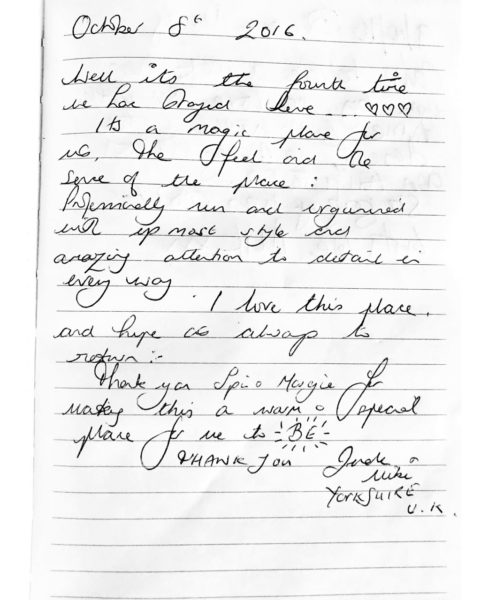 October 8th 2016.
Well its the fourth time
we have stayed here.... ♡♡♡
Its a magic place for
us, the feel and the
sense of the place :
Professionally run and organised
with up most style and
amazing attention to detail in
every way. I love this place.
and hope as always to
return :-
Thank you Spiro Margie for
making this a warm & special
place for me to BE
THANK YOU
Mike
YORKSHIRE
U.K.